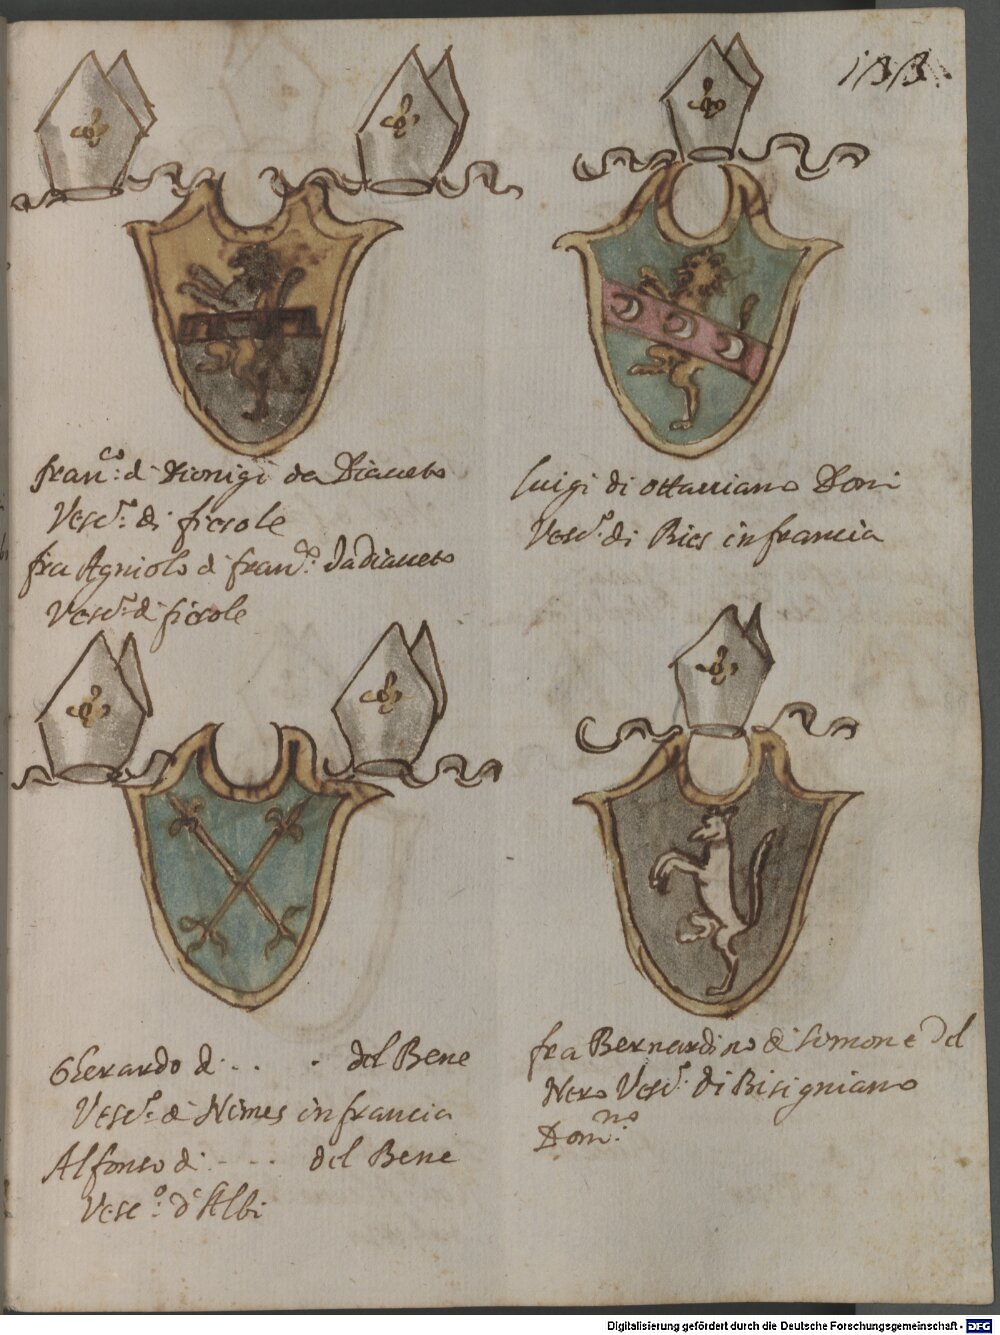 133.
fran.co d Dionigi da Diacceto
Vesc.o di fiesole
fra Agniolo d fran.co da Diacceto
Vesc.o di fiesole
Luigi di Ottaviano Doni
Vesc.o di Ries in francia
Gherardo di . . . del Bene
Vesc.o di Nimes in francia
Alfonso di - - - . del Bene
Vesc.o d'Albi
fra Bernardino di Simone del
Nero Vesc.o di Bisigniano
Dom.no
Digitalisierung gefördert durch die Deutsche Forschungsgemeinschaft - DFG